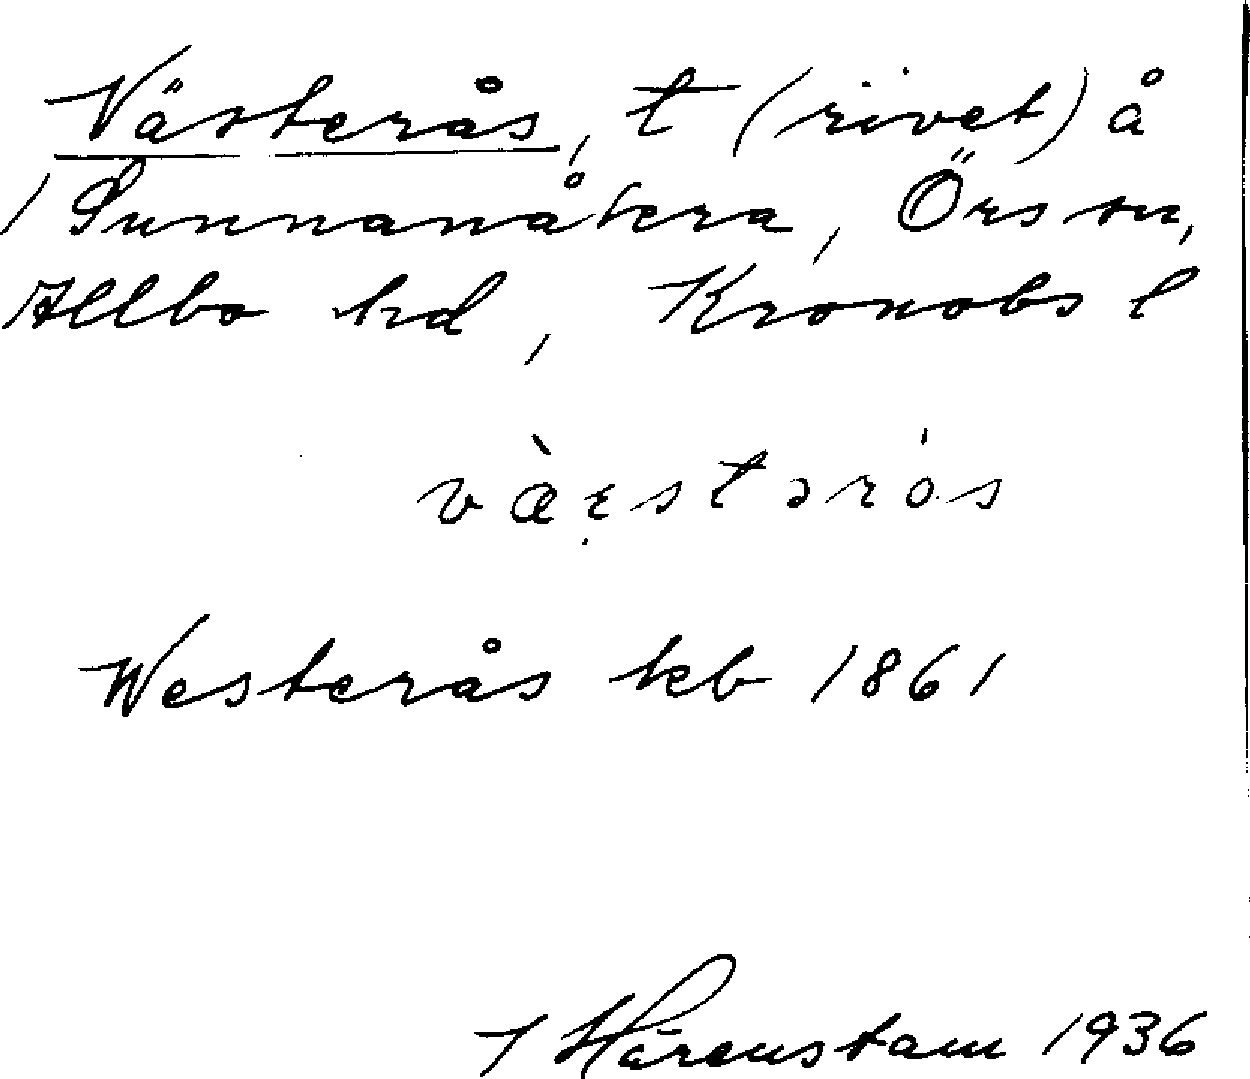 Västerås, t (rivet) å
/ Sunnanåkera, Örs sn,
Allbo hd, Kronobs l
Westerås kb 1861
Härenstam 1936